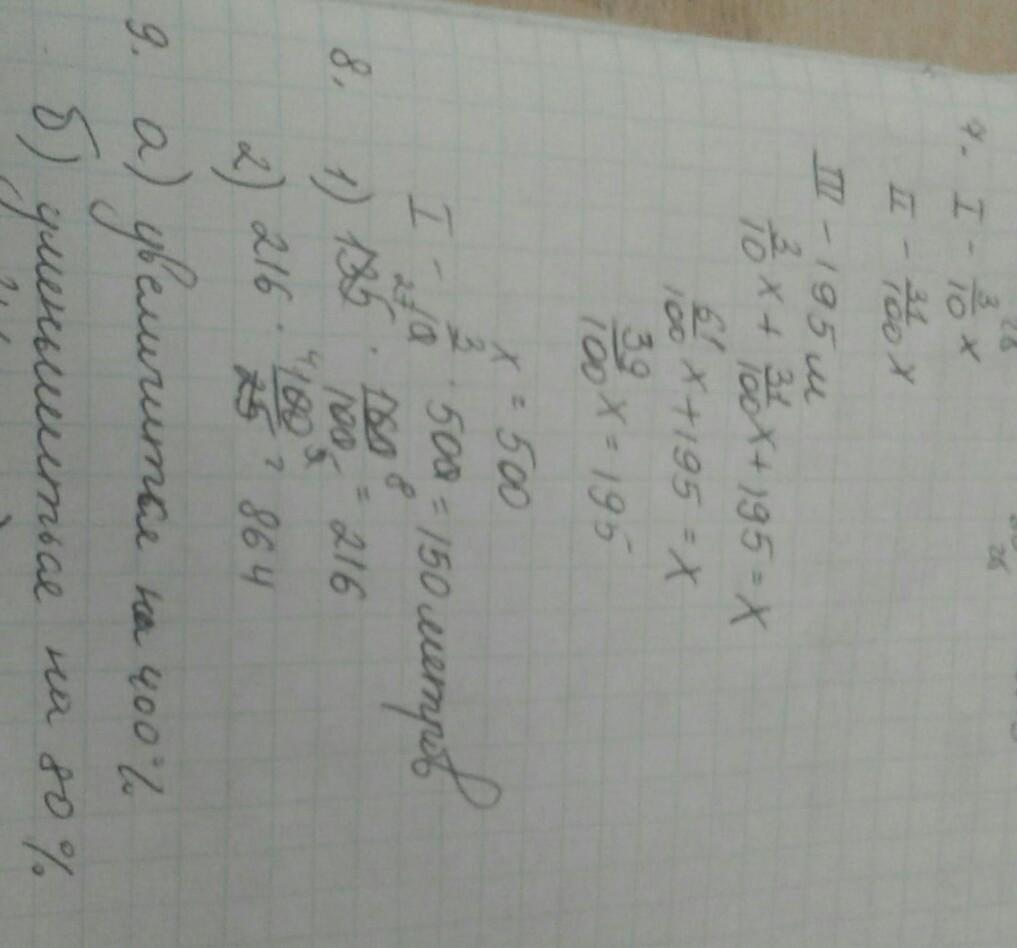 7. I - 3/10 x
II - 31/100 x
III - 195 м
3/10 x + 31/100 x + 195 = x
61/100 x + 195 = x
39/100 x = 195
x = 500
I - 3/10 · 500 = 150 метров
8. 1) 135 · 160/100 = 216
2) 216 · 100/25 = 864
9. а) увеличится на 400%
б) уменьшиться на 80%